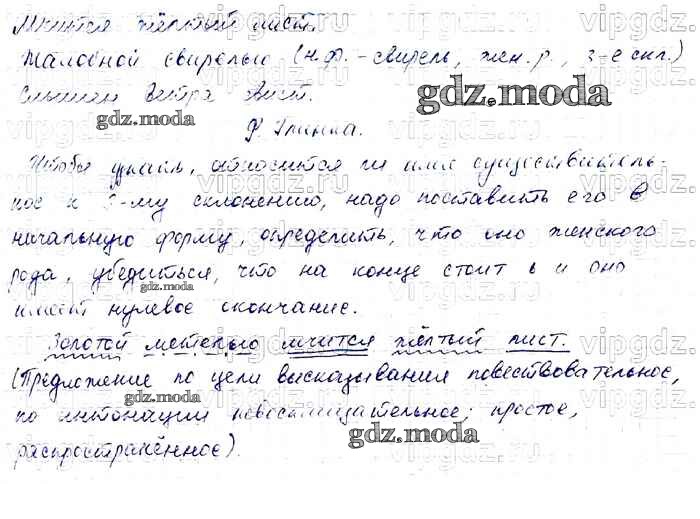 Мчится жёлтый лист.
Жалобной свирелью (н.ф. - свирель, жен. р., 3-е скл.)
Слышен ветра свист.
Ф. Глинка.
Чтобы узнать, относится ли имя существитель-
ное к 3-му склонению, надо поставить его в
начальную форму, определить, что оно женского
рода, убедиться, что на конце стоит ь и оно
имеет нулевое окончание.
Золотой метелью мчится жёлтый лист.
(Предложение по цели высказывания повествовательное,
по интонации невосклицательное; простое,
распространённое).
vipgdz.ru
gdz.moda